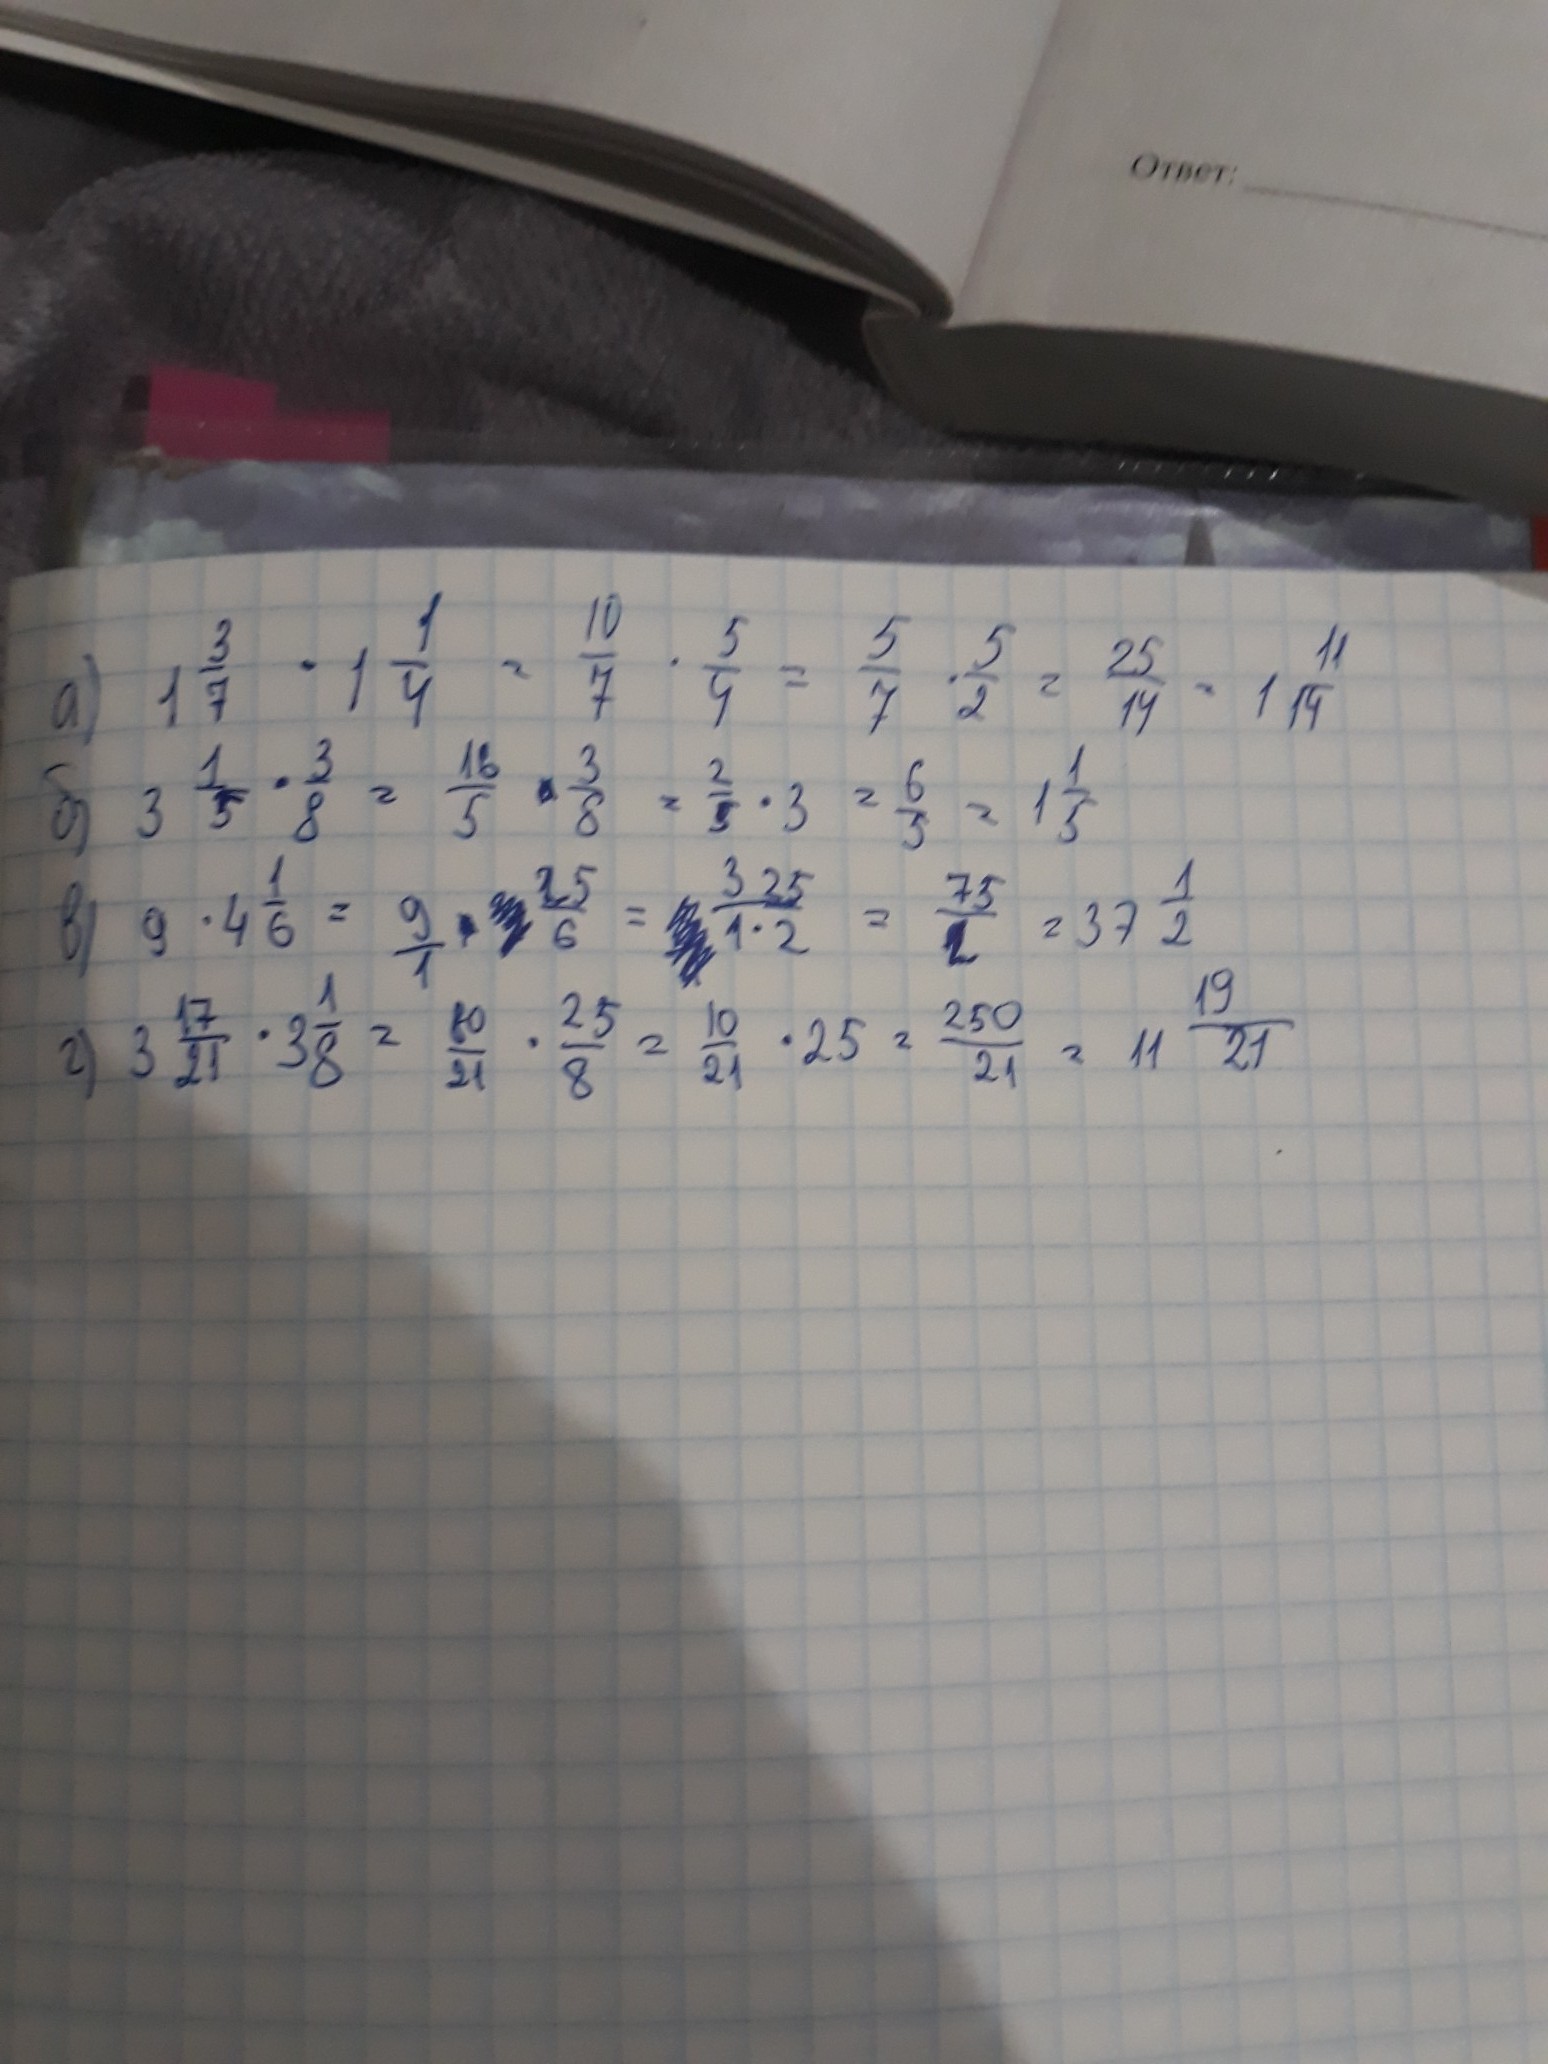 Ответ:
а) 1 3/7 · 1 1/4 = 10/7 · 5/4 = 5/7 · 5/2 = 25/14 = 1 11/14
б) 3 1/5 · 3/8 = 16/5 · 3/8 = 2/5 · 3 = 6/5 = 1 1/5
в) 9 · 4 1/6 = 9/1 · 25/6 = 3 25/1·2 = 75/2 = 37 1/2
г) 3 17/21 · 3 1/8 = 80/21 · 25/8 = 10/21 · 25 = 250/21 = 11 19/21